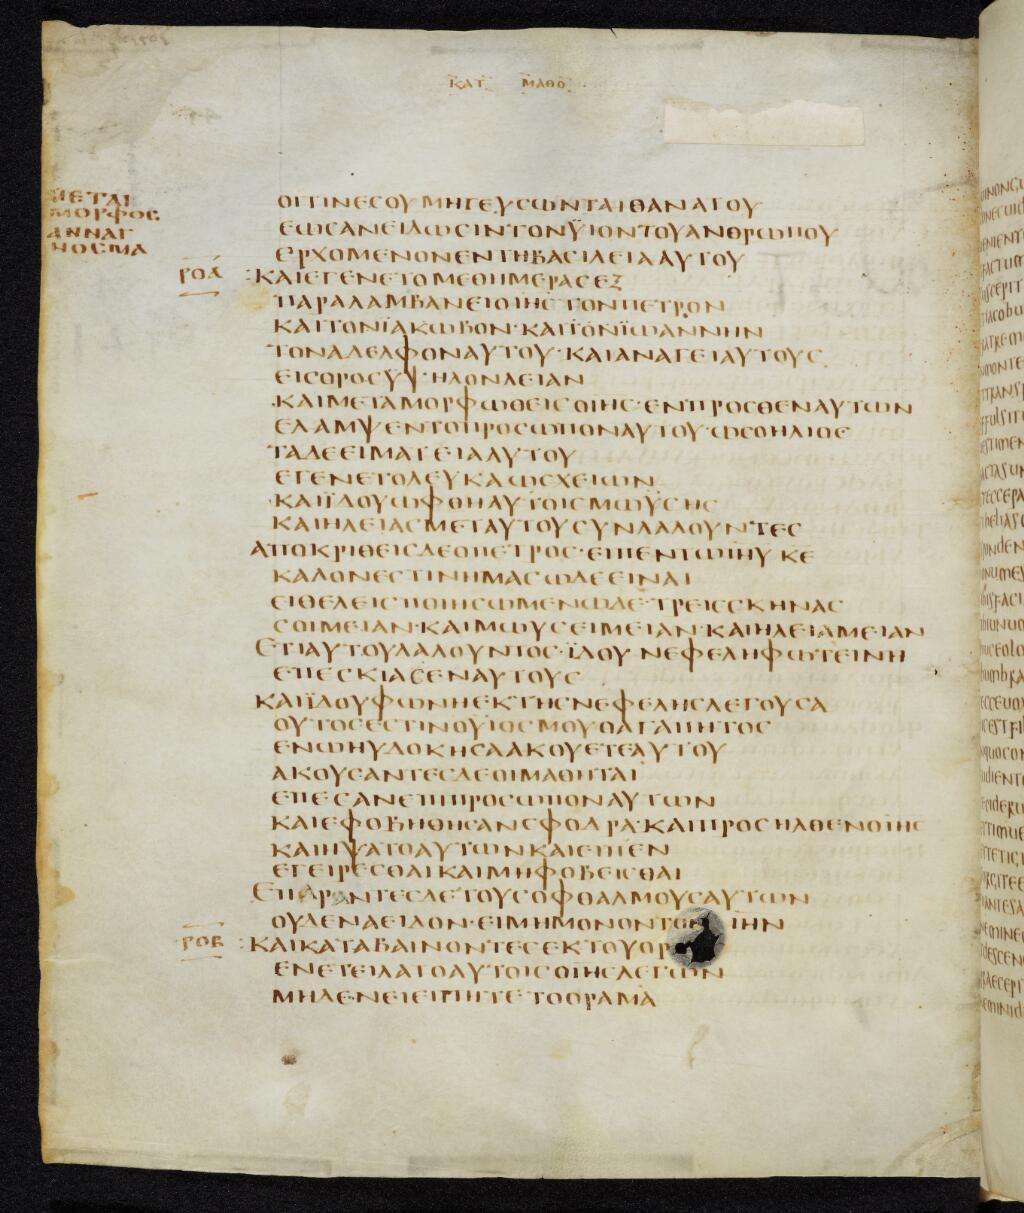 ΚΑΤ ΜΑΘΘ
ΜΕΤΑΙ
ΜΟΡΦΟϹ
ΑΝΝΑΓ
ΝΟϹΜΑ
ΟΙΤΙΝΕϹ ΟΥ ΜΗ ΓΕΥϹΩΝΤΑΙ ΘΑΝΑΤΟΥ
ΕΩϹ ΑΝ ΕΙΔΩϹΙΝ ΤΟΝ ΫΙΟΝ ΤΟΥ ΑΝΘΡΩΠΟΥ
ΕΡΧΟΜΕΝΟΝ ΕΝ ΤΗ ΒΑϹΙΛΕΙΑ ΑΥΤΟΥ
ΡΟΑ :ΚΑΙ ΕΓΕΝΕΤΟ ΜΕΘ ΗΜΕΡΑϹ ΕΞ
ΠΑΡΑΛΑΜΒΑΝΕΙ Ο ΙΗϹ ΤΟΝ ΠΕΤΡΟΝ
ΚΑΙ ΤΟΝ ΪΑΚΩΒΟΝ· ΚΑΙ ΤΟΝ ΪΩΑΝΝΗΝ
ΤΟΝ ΑΔΕΛΦΟΝ ΑΥΤΟΥ· ΚΑΙ ΑΝΑΓΕΙ ΑΥΤΟΥϹ
ΕΙϹ ΟΡΟϹ ΥΨΗΛΟΝ ΛΕΙΑΝ
ΚΑΙ ΜΕΤΑΜΟΡΦΩΘΕΙϹ Ο ΙΗϹ· ΕΝΠΡΟϹΘΕΝ ΑΥΤΩΝ
ΕΛΑΜΨΕΝ ΤΟ ΠΡΟϹΩΠΟΝ ΑΥΤΟΥ· ΩϹ Ο ΗΛΙΟϹ
ΤΑ ΔΕ ΕΙΜΑΤΕΙΑ ΑΥΤΟΥ
ΕΓΕΝΕΤΟ ΛΕΥΚΑ ΩϹ ΧΕΙΩΝ
ΚΑΙ ΪΔΟΥ ΩΦΘΗ ΑΥΤΟΙϹ ΜΩΫϹΗϹ
ΚΑΙ ΗΛΕΙΑϹ ΜΕΤ ΑΥΤΟΥ ϹΥΝΛΑΛΟΥΝΤΕϹ
ΑΠΟΚΡΙΘΕΙϹ ΔΕ Ο ΠΕΤΡΟϹ· ΕΙΠΕΝ ΤΩ ΙΗΥ ΚΕ
ΚΑΛΟΝ ΕϹΤΙΝ ΗΜΑϹ ΩΔΕ ΕΙΝΑΙ
ΕΙ ΘΕΛΕΙϹ ΠΟΙΗϹΩΜΕΝ ΩΔΕ· ΤΡΕΙϹ ϹΚΗΝΑϹ
ϹΟΙ ΜΕΙΑΝ· ΚΑΙ ΜΩΥϹΕΙ ΜΕΙΑΝ· ΚΑΙ ΗΛΕΙΑ ΜΕΙΑΝ
ΕΤΙ ΑΥΤΟΥ ΛΑΛΟΥΝΤΟϹ· ΪΔΟΥ ΝΕΦΕΛΗ ΦΩΤΕΙΝΗ
ΕΠΕϹΚΙΑϹΕΝ ΑΥΤΟΥϹ
ΚΑΙ ΪΔΟΥ ΦΩΝΗ ΕΚ ΤΗϹ ΝΕΦΕΛΗϹ ΛΕΓΟΥϹΑ
ΟΥΤΟϹ ΕϹΤΙΝ Ο ΥΙΟϹ ΜΟΥ Ο ΑΓΑΠΗΤΟϹ
ΕΝ Ω ΗΥΔΟΚΗϹΑ ΑΚΟΥΕΤΕ ΑΥΤΟΥ
ΑΚΟΥϹΑΝΤΕϹ ΔΕ ΟΙ ΜΑΘΗΤΑΙ
ΕΠΕϹΑΝ ΕΠΙ ΠΡΟϹΩΠΟΝ ΑΥΤΩΝ
ΚΑΙ ΕΦΟΒΗΘΗϹΑΝ ϹΦΟΔΡΑ· ΚΑΙ ΠΡΟϹΗΛΘΕΝ Ο ΙΗϹ
ΚΑΙ ΗΨΑΤΟ ΑΥΤΩΝ ΚΑΙ ΕΙΠΕΝ
ΕΓΕΙΡΕϹΘΑΙ ΚΑΙ ΜΗ ΦΟΒΕΙϹΘΑΙ
ΕΠΑΡΑΝΤΕϹ ΔΕ ΤΟΥϹ ΟΦΘΑΛΜΟΥϹ ΑΥΤΩΝ
ΟΥΔΕΝΑ ΕΙΔΟΝ· ΕΙ ΜΗ ΜΟΝΟΝ ΤΟΝ ΙΗΝ
ΡΟΒ :ΚΑΙ ΚΑΤΑΒΑΙΝΟΝΤΕϹ ΕΚ ΤΟΥ ΟΡ
ΕΝΕΤΕΙΛΑΤΟ ΑΥΤΟΙϹ Ο ΙΗϹ ΛΕΓΩΝ
ΜΗΔΕΝΕΙ ΕΙΠΗΤΕ ΤΟ ΟΡΑΜΑ